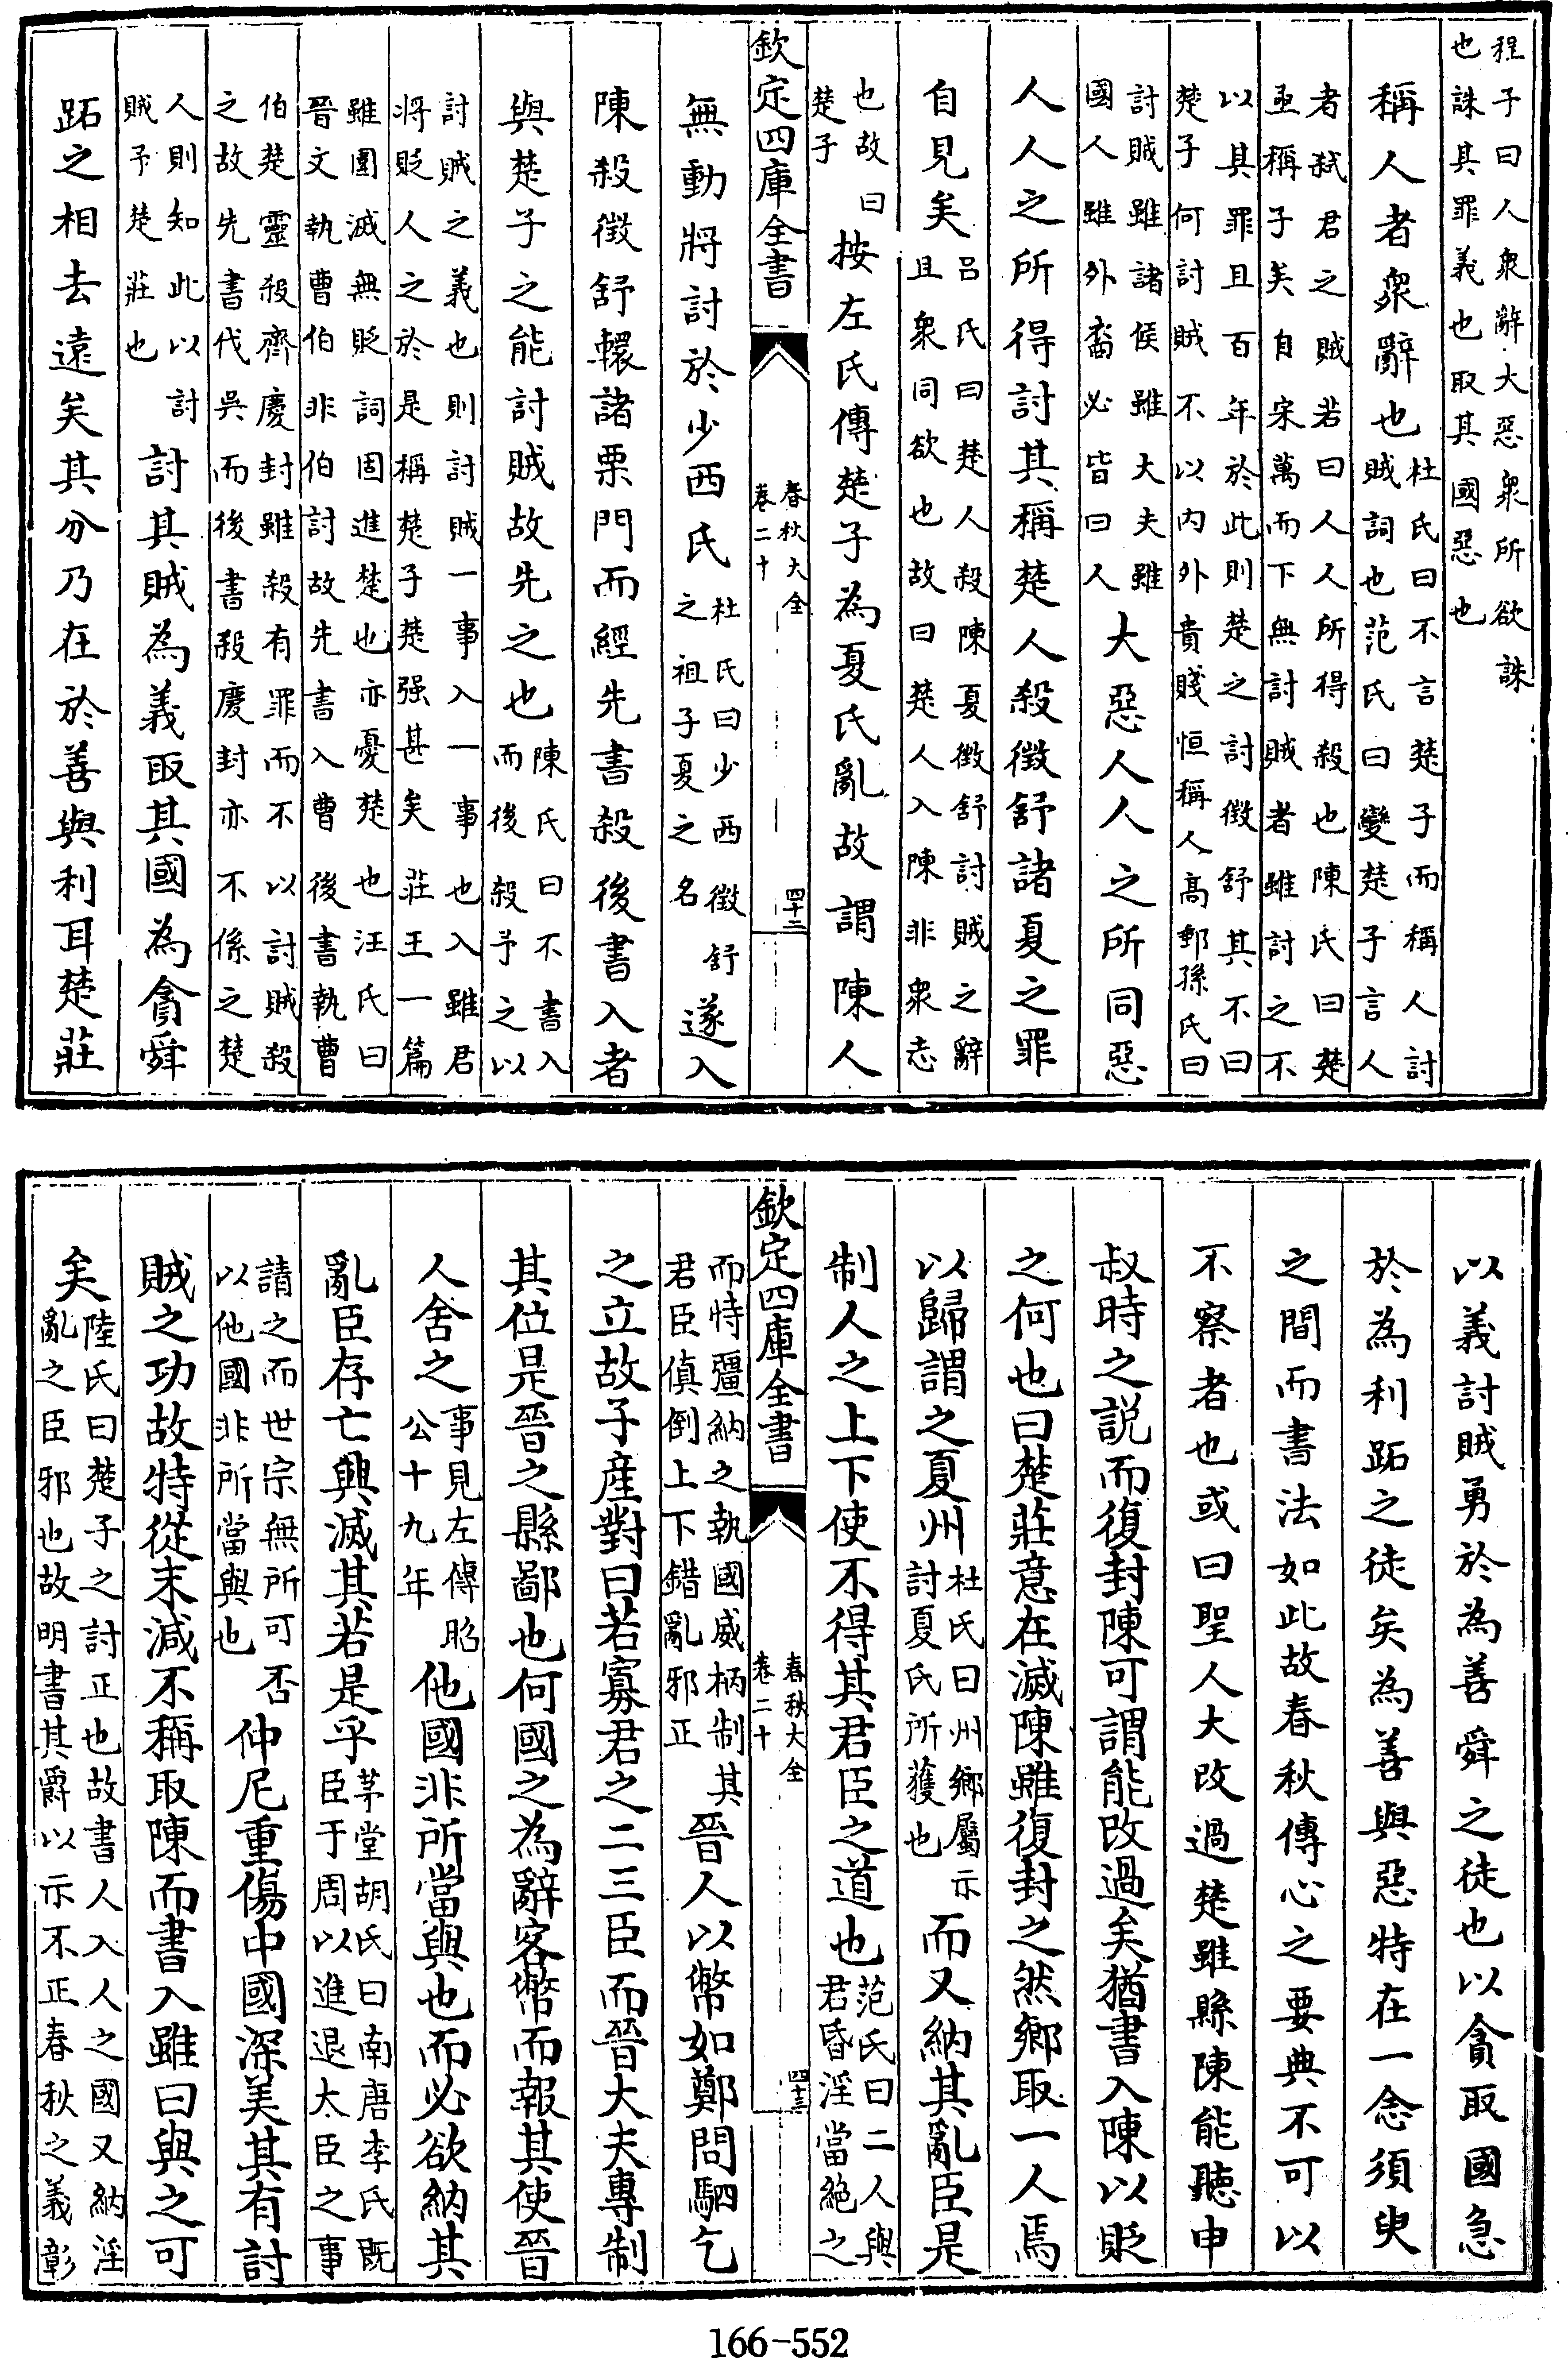 程子曰人衆辭大惡衆所欲誅
也誅其罪義也取其國惡也
稱人者衆辭也杜氏曰不言楚子而稱人討
賊詞也范氏曰變楚子言人
者弑君之賊若曰人人所得殺也陳氏曰楚
亟稱子矣自宋萬而下無討賊者雖討之不
以其罪且百年於此則楚之討徴舒其不曰
楚子何討賊不以内外貴賤恒稱人髙郵孫氏曰
討賊雖諸侯雖大夫雖
國人雖外裔必皆曰人大惡人人之所同惡
人人之所得討其稱楚人殺徴舒諸夏之罪
自見矣吕氏曰楚人殺陳夏徴舒討賊之辭
且衆同欲也故曰楚人入陳非衆志
也故曰
楚子按左氏傳楚子為夏氏亂故謂陳人
欽定四庫全書
春秋大全
卷二十
四十二
無動將討於少西氏杜氏曰少西徴舒
之祖子夏之名遂入
陳殺徴舒轘諸栗門而經先書殺後書入者
與楚子之能討賊故先之也陳氏曰不書入
而後殺予之以
討賊之義也則討賊一事入一事也入雖君
將貶人之於是稱楚子楚强甚矣莊王一篇
雖圍滅無貶詞固進楚也亦憂楚也汪氏曰
晉文執曹伯非伯討故先書入曹後書執曹
伯楚靈殺齊慶封雖殺有罪而不以討賊殺
之故先書伐吳而後書殺慶封亦不係之楚
人則知此以討
賊予楚莊也討其賊為義取其國為貪舜
跖之相去遠矣其分乃在於善與利耳楚莊
以義討賊勇於為善舜之徒也以貪取國急
於為利跖之徒矣為善與惡特在一念須臾
之間而書法如此故春秋傳心之要典不可以
不察者也或曰聖人大改過楚雖縣陳能聽申
叔時之説而復封陳可謂能改過矣猶書入陳以貶
之何也曰楚莊意在滅陳雖復封之然鄉取一人焉
以歸謂之夏州杜氏曰州鄉屬示
討夏氏所獲也而又納其亂臣是
制人之上下使不得其君臣之道也范氏曰二人與
君昏淫當絶之
欽定四庫全書
春秋大全
卷二十
四十三
而恃彊納之執國威柄制其
君臣傎倒上下錯亂邪正晉人以幣如鄭問駟乞
之立故子産對曰若寡君之二三臣而晉大夫專制
其位是晉之縣鄙也何國之為辭客幣而報其使晉
人舍之事見左傳昭
公十九年他國非所當與也而必欲納其
亂臣存亡興滅其若是乎茅堂胡氏曰南唐李氏既
臣于周以進退大臣之事
請之而世宗無所可否
以他國非所當與也仲尼重傷中國深美其有討
賊之功故特從末減不稱取陳而書入雖曰與之可
矣陸氏曰楚子之討正也故書人入人之國又納淫
亂之臣邪也故明書其爵以示不正春秋之義彰
166-552